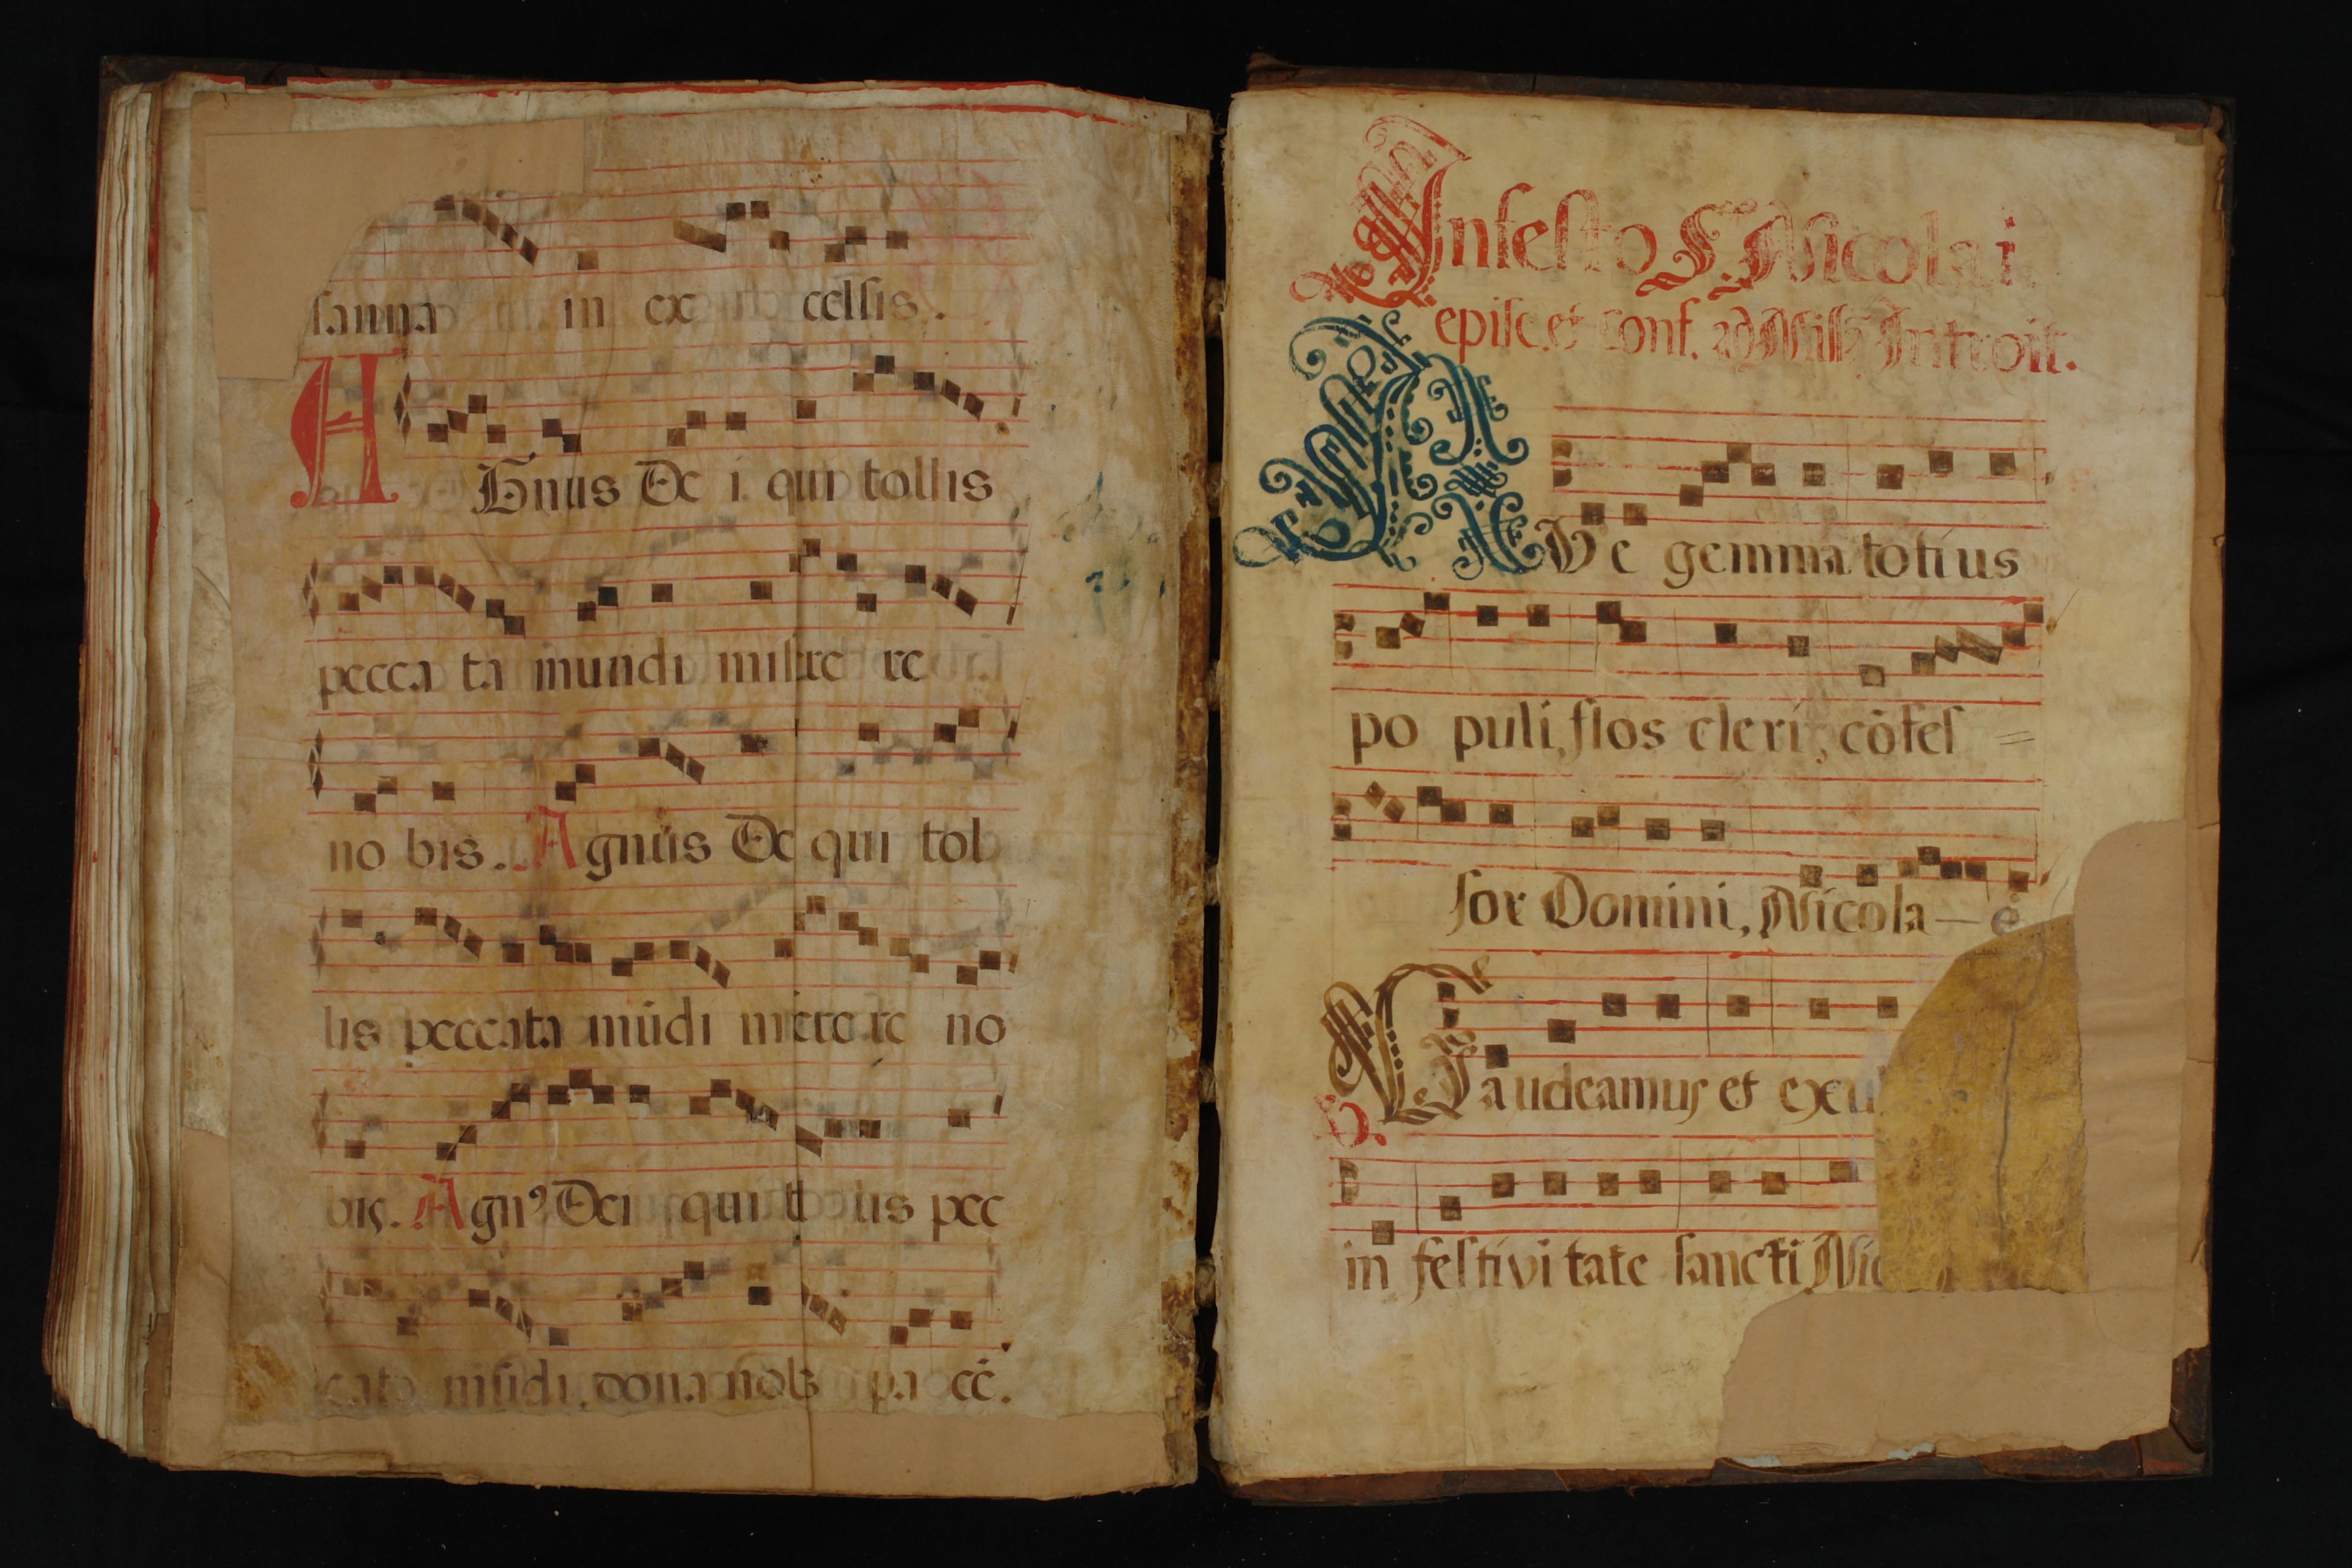 sanna in ex celsis.
Agnus De i qui tollis
pecca ta mundi misere re
no bis. Agnus De qui tol
lis peccata mūdi mīcrere no
bis. Agnꝰ Dei qui t lis pec
cata mūdi, dona nobis pa cē.
In festo S. Nicolai
episc. et conf. ad Missā Introit.
AVe gemma totius
po puli, flos cleri, cōfes =
sor Domini, Nicola — e
Gaudeamus et exu
V.
in festivi tate sancti Nic